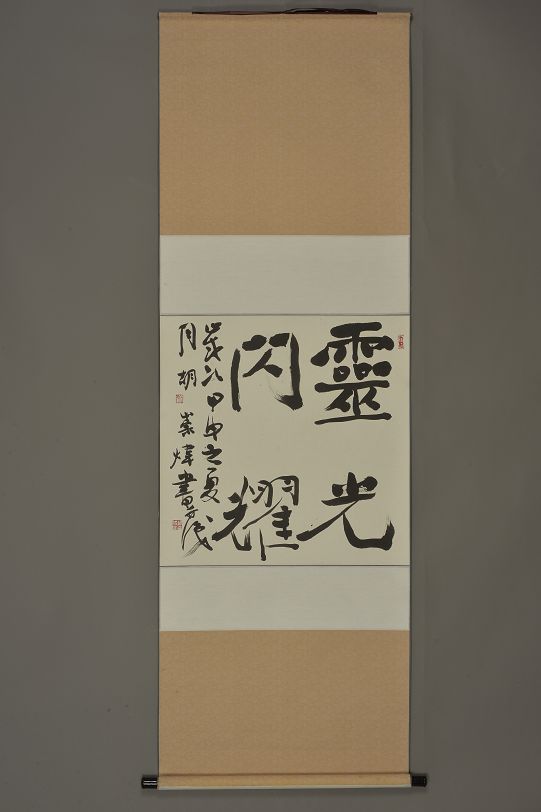 靈光
閃耀
歲次甲申之夏
月 胡崇煒書